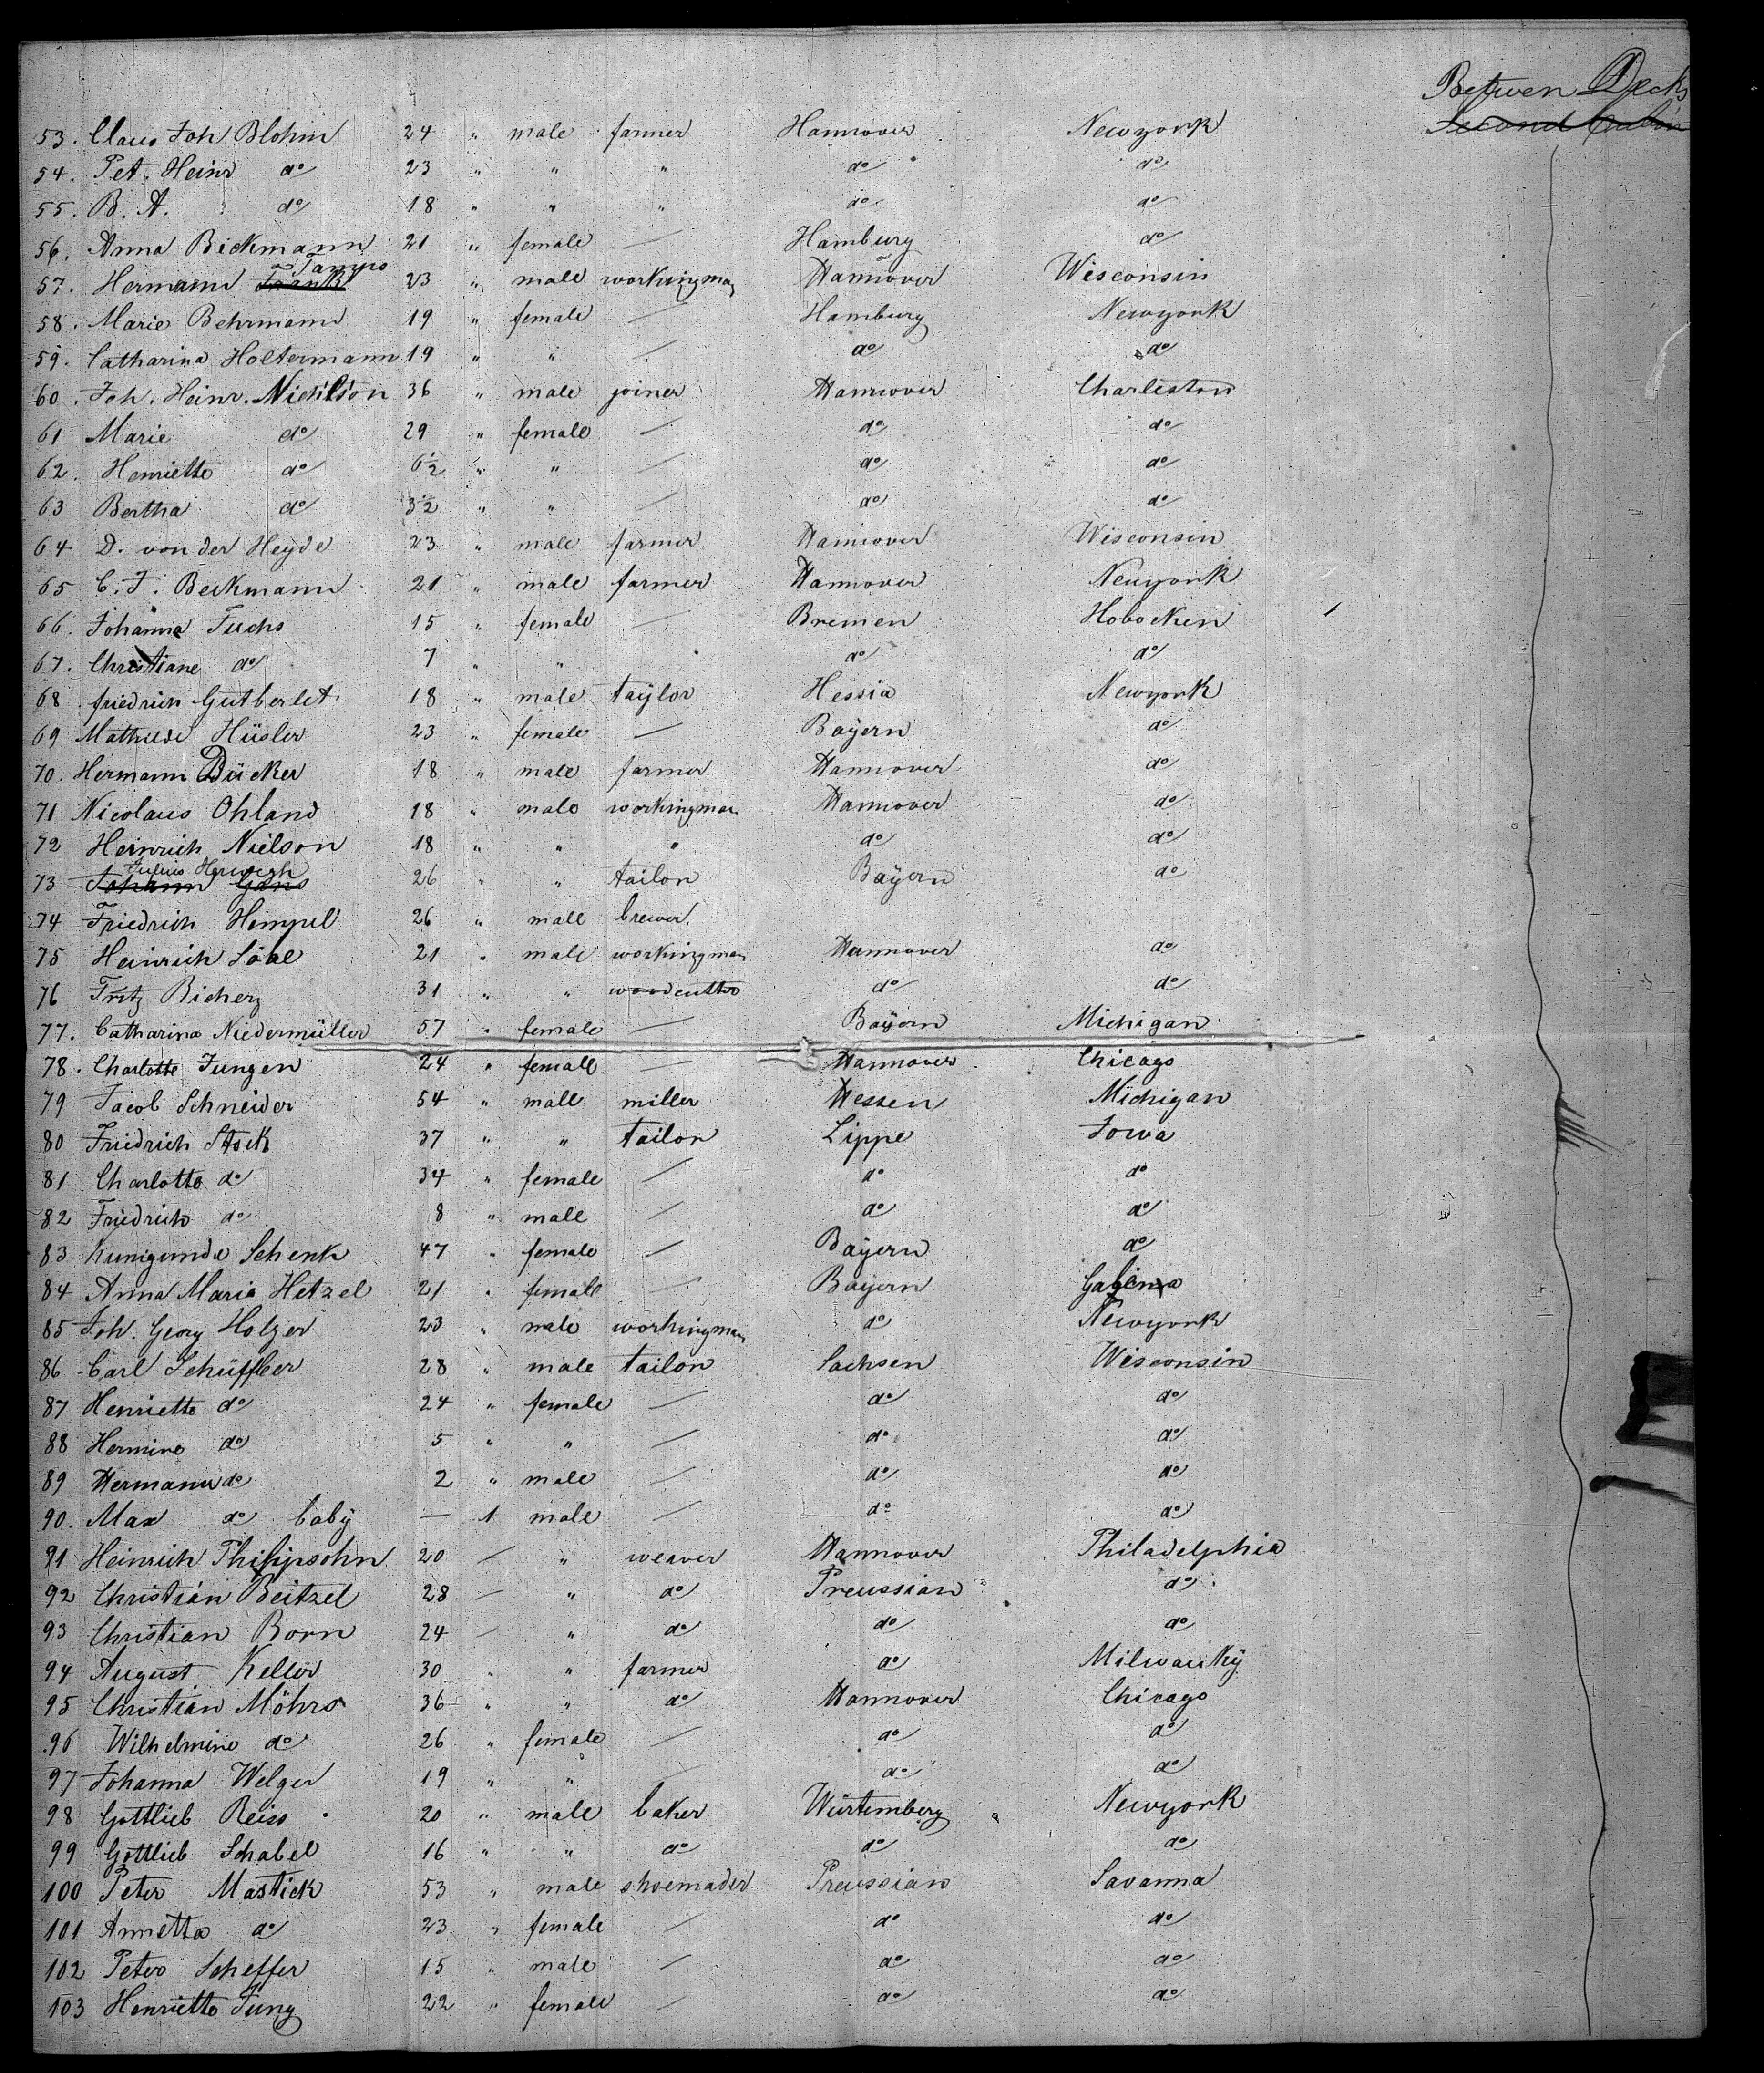 Betwen Decks
Second Cabin
53. Claus Joh Blohm 24 " male farmer Hannover Newyork
54. Pet. Heinr do 23 " " " do do
55. B. A. do 18 " " " do do
56. Anna Bickmann 21 " female — Hamburg do
Tamps
57. Hermann Frank 23 " male workingman Hannover Wisconsin
58. Marie Behrmann 19 " female — Hamburg Newyork
59. Catharina Holtermann 19 " " — do do
60. Joh. Heinr. Nichlson 36 " male joiner Hannover Charleston
61 Marie do 29 " female — do do
62. Henriette do 6½ " " — do do
63 Bertha do 3½ " " — do do
64 D. von der Heyde 23 " male farmer Hannover Wisconsin
65 C. F. Beckmann 21 " male farmer Hannover Newyork
66. Johanna Fuchs 15 " female — Bremen Hobocken
67. Christiane do 7 " " do do
68 friedrich Gutberlet 18 " male taylor Hessia Newyork
69 Hüsler 23 " female — Bayern do
70. Hermann Dücker 18 " male farmer Hannover do
71 Nicolaus Ohland 18 " male workingman Hannover do
72 Heinrich Nielson 18 " " " do do
Julius Herwegh
73 Johann Gans 26 " " tailor Bayern do
74 Friedrich Hempel 26 " male brewer
75 Heinrich 21 " male workingman Hannover do
76 Fritz Richerz 31 " " woodcutter do do
77. Catharina Niedermüller 57 " female — Bayern Michigan
78. Charlotte Jungen 24 " female — Hannover Chicago
79 Jacob Schneider 54 " male miller Hessen Michigan
80 Friedrich Stock 37 " " tailor Lippe Iowa
81 Charlotte do 34 " female — do do
82 Friedrich do 8 " male — do do
83 Kunigunde Schenk 47 " female — Bayern do
84 Anna Maria Hetzel 21 " female — Bayern Galena
85 Joh. Georg Holzer 23 " male workingman do Newyork
86 Carl Schüffler 28 " male tailor Sachsen Wisconsin
87 Henriette do 24 " female — do do
88 Hermine do 5 " " — do do
89 Hermann do 2 " male — do do
90. Max do baby — 1 male — do do
91 Heinrich Philippsohn 20 — " weaver Hannover Philadelphia
92 Christian Beitzel 28 — " do Preussian do
93 Christian Born 24 — " do do do
94 August Keller 30 " " farmer do Milwauky
95 Christian Möhrs 36 " " do Hannover Chicago
96 Wilhelmine do 26 " female — do do
97 Johanna Welger 19 " " — do do
98 Gottlieb Reiss 20 " male baker Würtemberg Newyork
99 Gottlieb Schabel 16 " " do do do
100 Peter Mastick 53 " male shoemader Preussian Savanna
101 Annetta do 23 " female — do do
102 Peter Scheffer 15 " male — do do
103 Henriette Jung 22 " female — do do